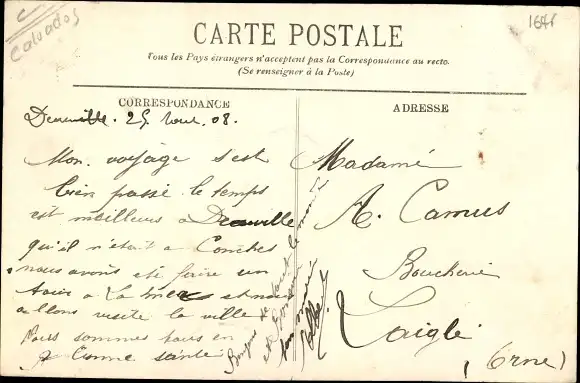 Calvados
1641
CARTE POSTALE
Tous les Pays étrangers n'acceptent pas la Correspondance au recto.
(Se renseigner à la Poste)
CORRESPONDANCE
Deauville. 25 Aout. 08.
Mon. voyage s'est
bien passé le temps
est meilleurs a Deauville
qu'il n'était a Conches
nous avons été faire un
tour a La mer et nous
allons visité la ville
Nous sommes tous en
bonne santé
Bonjour de tout le monde
et
ton mari
ADRESSE
Madame
A. Camus
Boucherie
Laigle
(Orne)